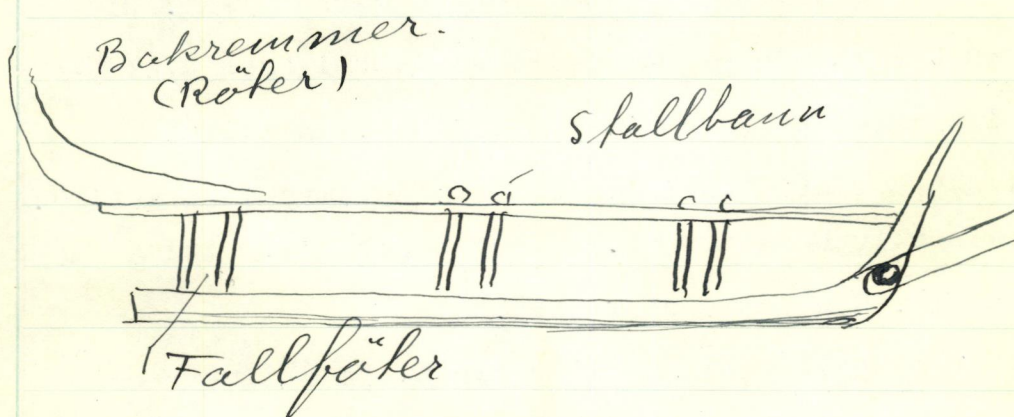 Bakremmer.
(Röter)
Stallbann
Fallföter